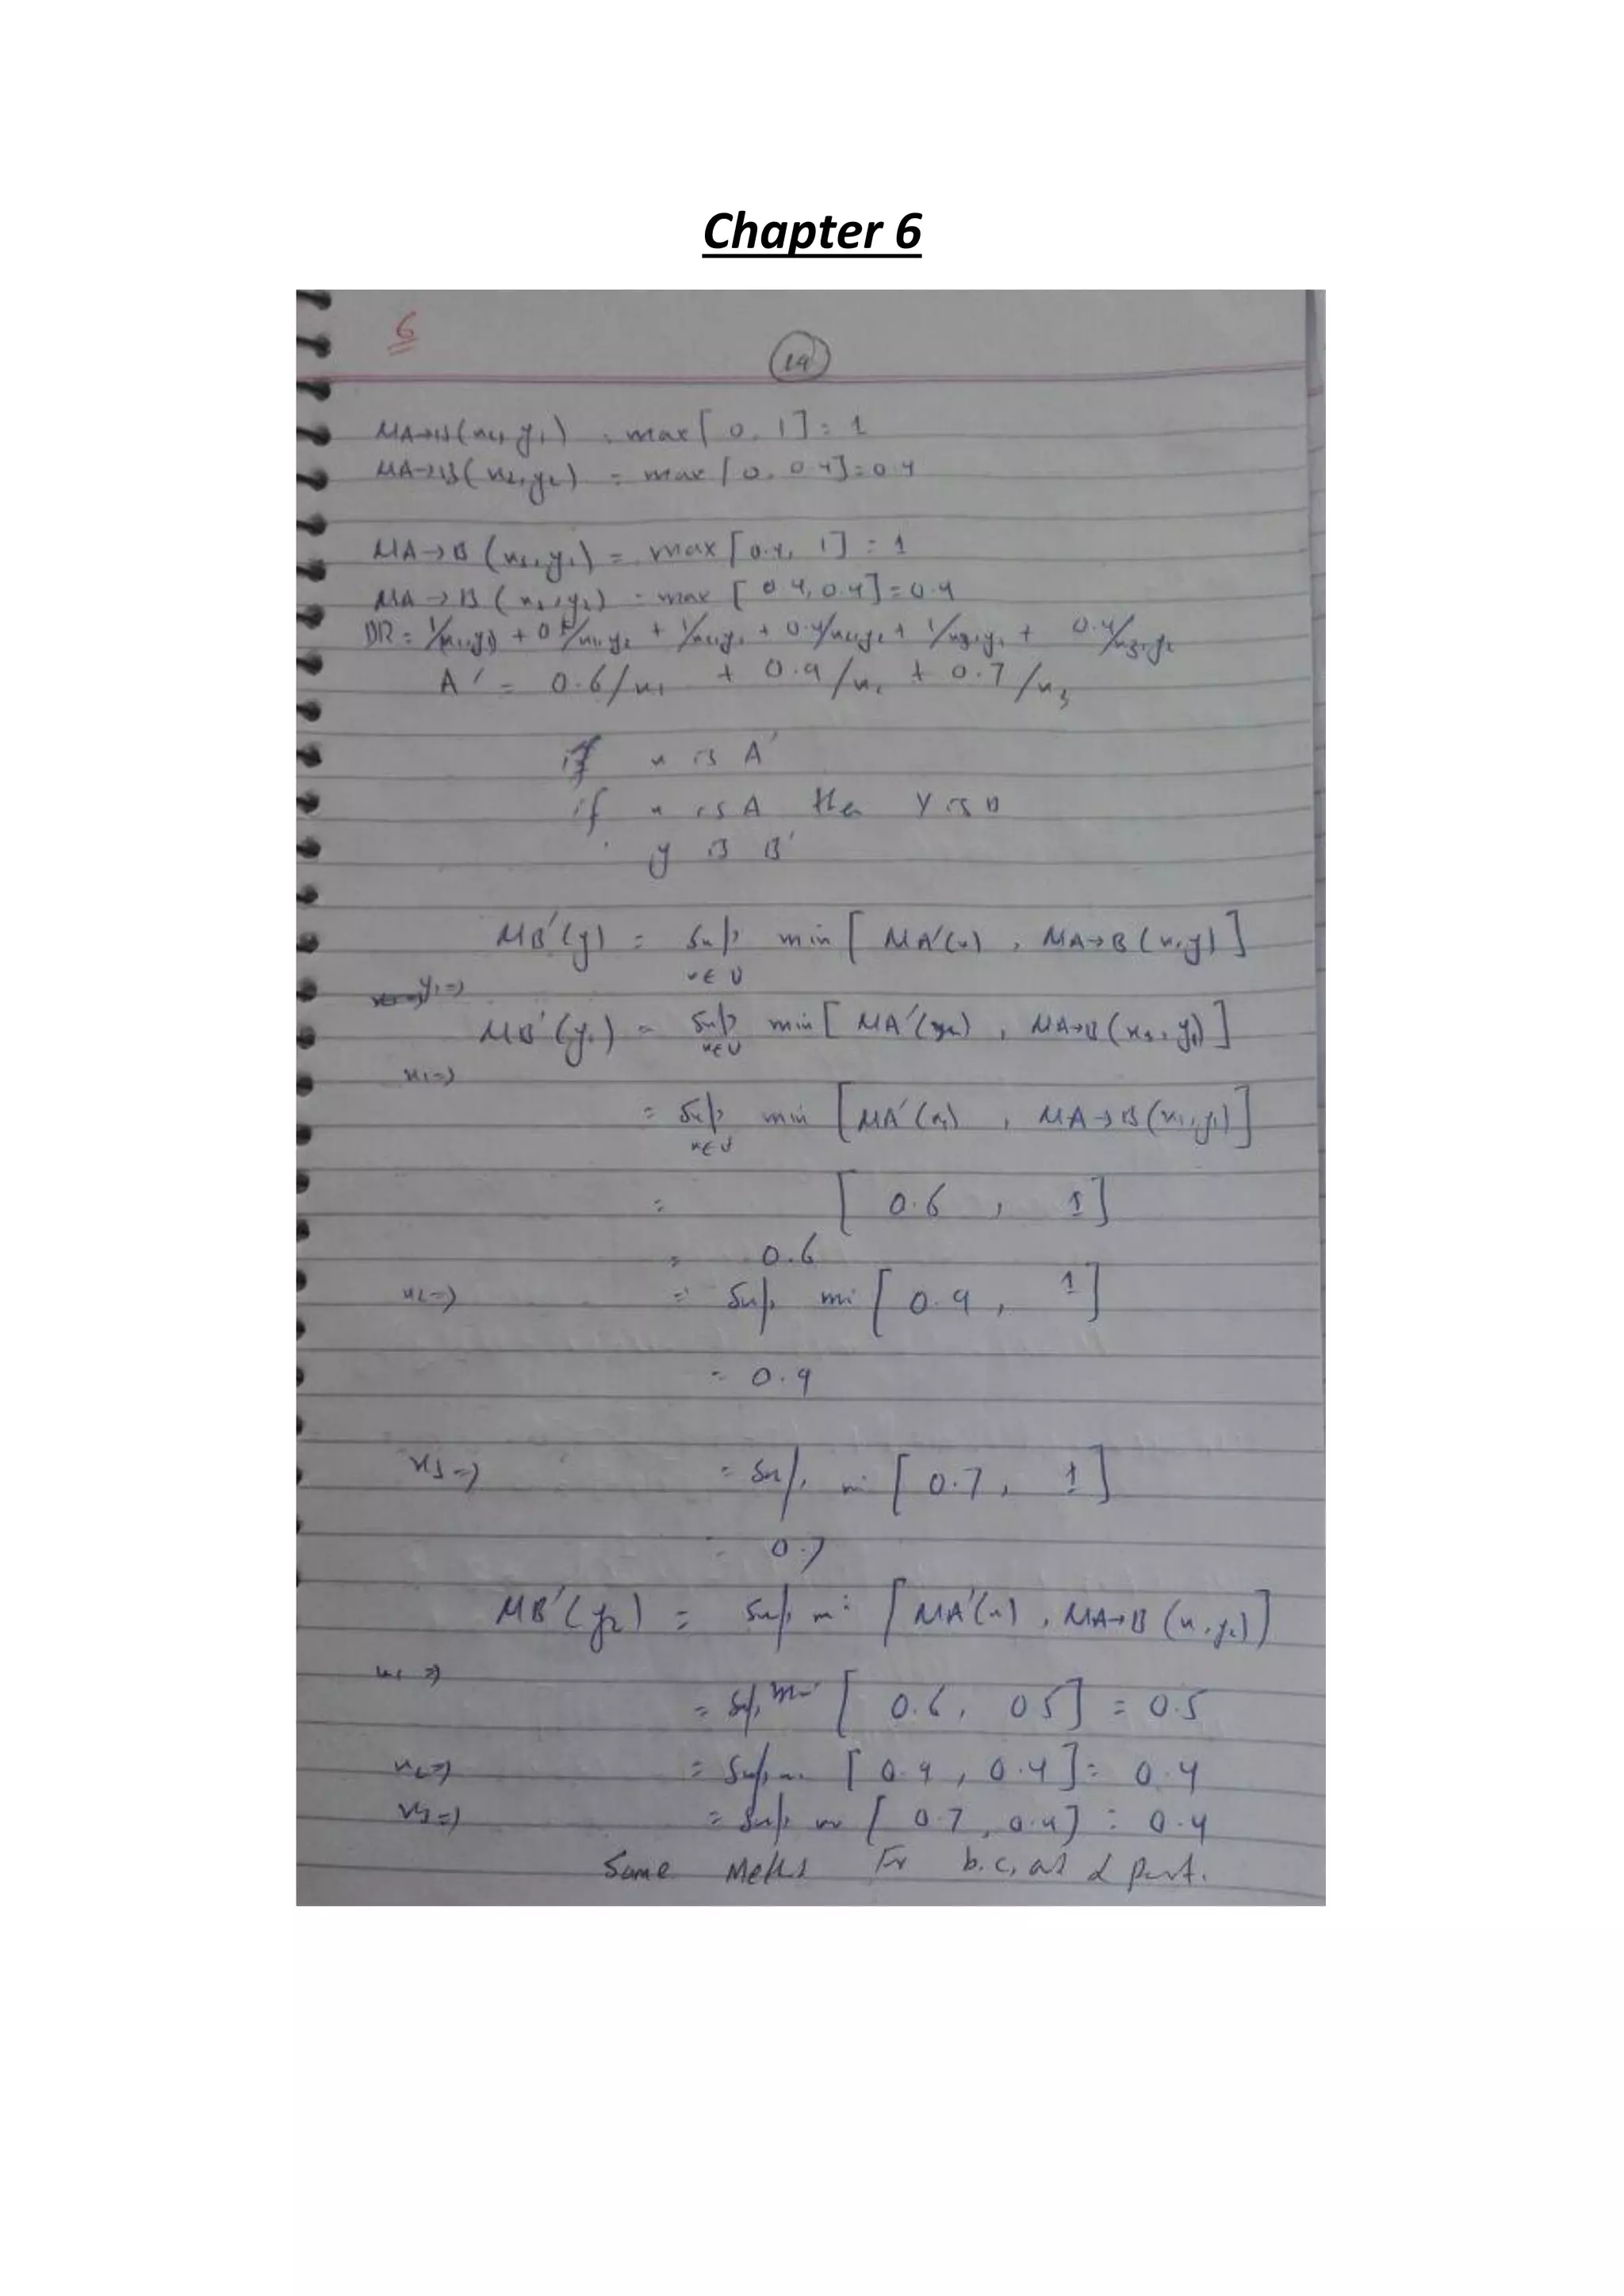 Chapter 6
6
14
MA→B(x2, y1) = max[ 0, 1] = 1
MA→B( x2, y2) = max [ 0, 0.4] = 0.4
MA→B (x3, y1) = max [ 0.4, 1] = 1
MA→B ( x3, y2) = max [ 0.4, 0.4] = 0.4
DR = 1/x1,y1 + 0.5/x1,y2 + 1/x2,y1 + 0.4/x2,y2 + 1/x3,y1 + 0.4/x3,y2
A' = 0.6/x1 + 0.9/x2 + 0.7/x3
if x is A'
if x is A then Y is B
y is B'
MB'(y) = Sup min [ MA'(x) , MA→B (x,y) ]
x∈U
y1 =>
MB'(y1) = Sup min [ MA'(x) , MA→B (x1, y1) ]
x∈U
x1 =>
= Sup min [ MA'(x1) , MA→B (x1, y1) ]
x∈U
= [ 0.6 , 1 ]
= 0.6
x2 => = Sup mi [ 0.9 , 1 ]
= 0.9
x3 => = Sup m [ 0.7 , 1 ]
= 0.7
MB'(y2) = Sup mi [ MA'(x) , MA→B (x, y2) ]
x1 =>
= Sup min [ 0.6, 0.5 ] = 0.5
x2 => = Sup m [ 0.9 , 0.4 ] = 0.4
x3 => = Sup m [ 0.7 , 0.4 ] = 0.4
Same For b, c, and d part.